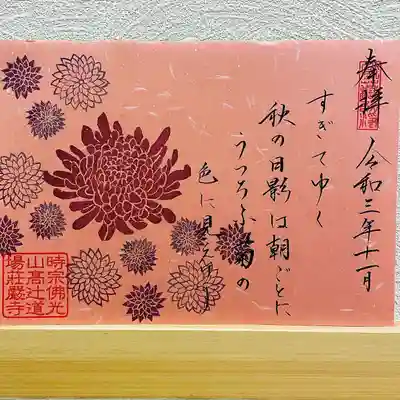 奉拝 令和三年十一月
すぎてゆく
秋の日影は朝ごとに
うつろふ菊の
色に見えけり
時宗佛光
山高辻道
場荘嚴寺